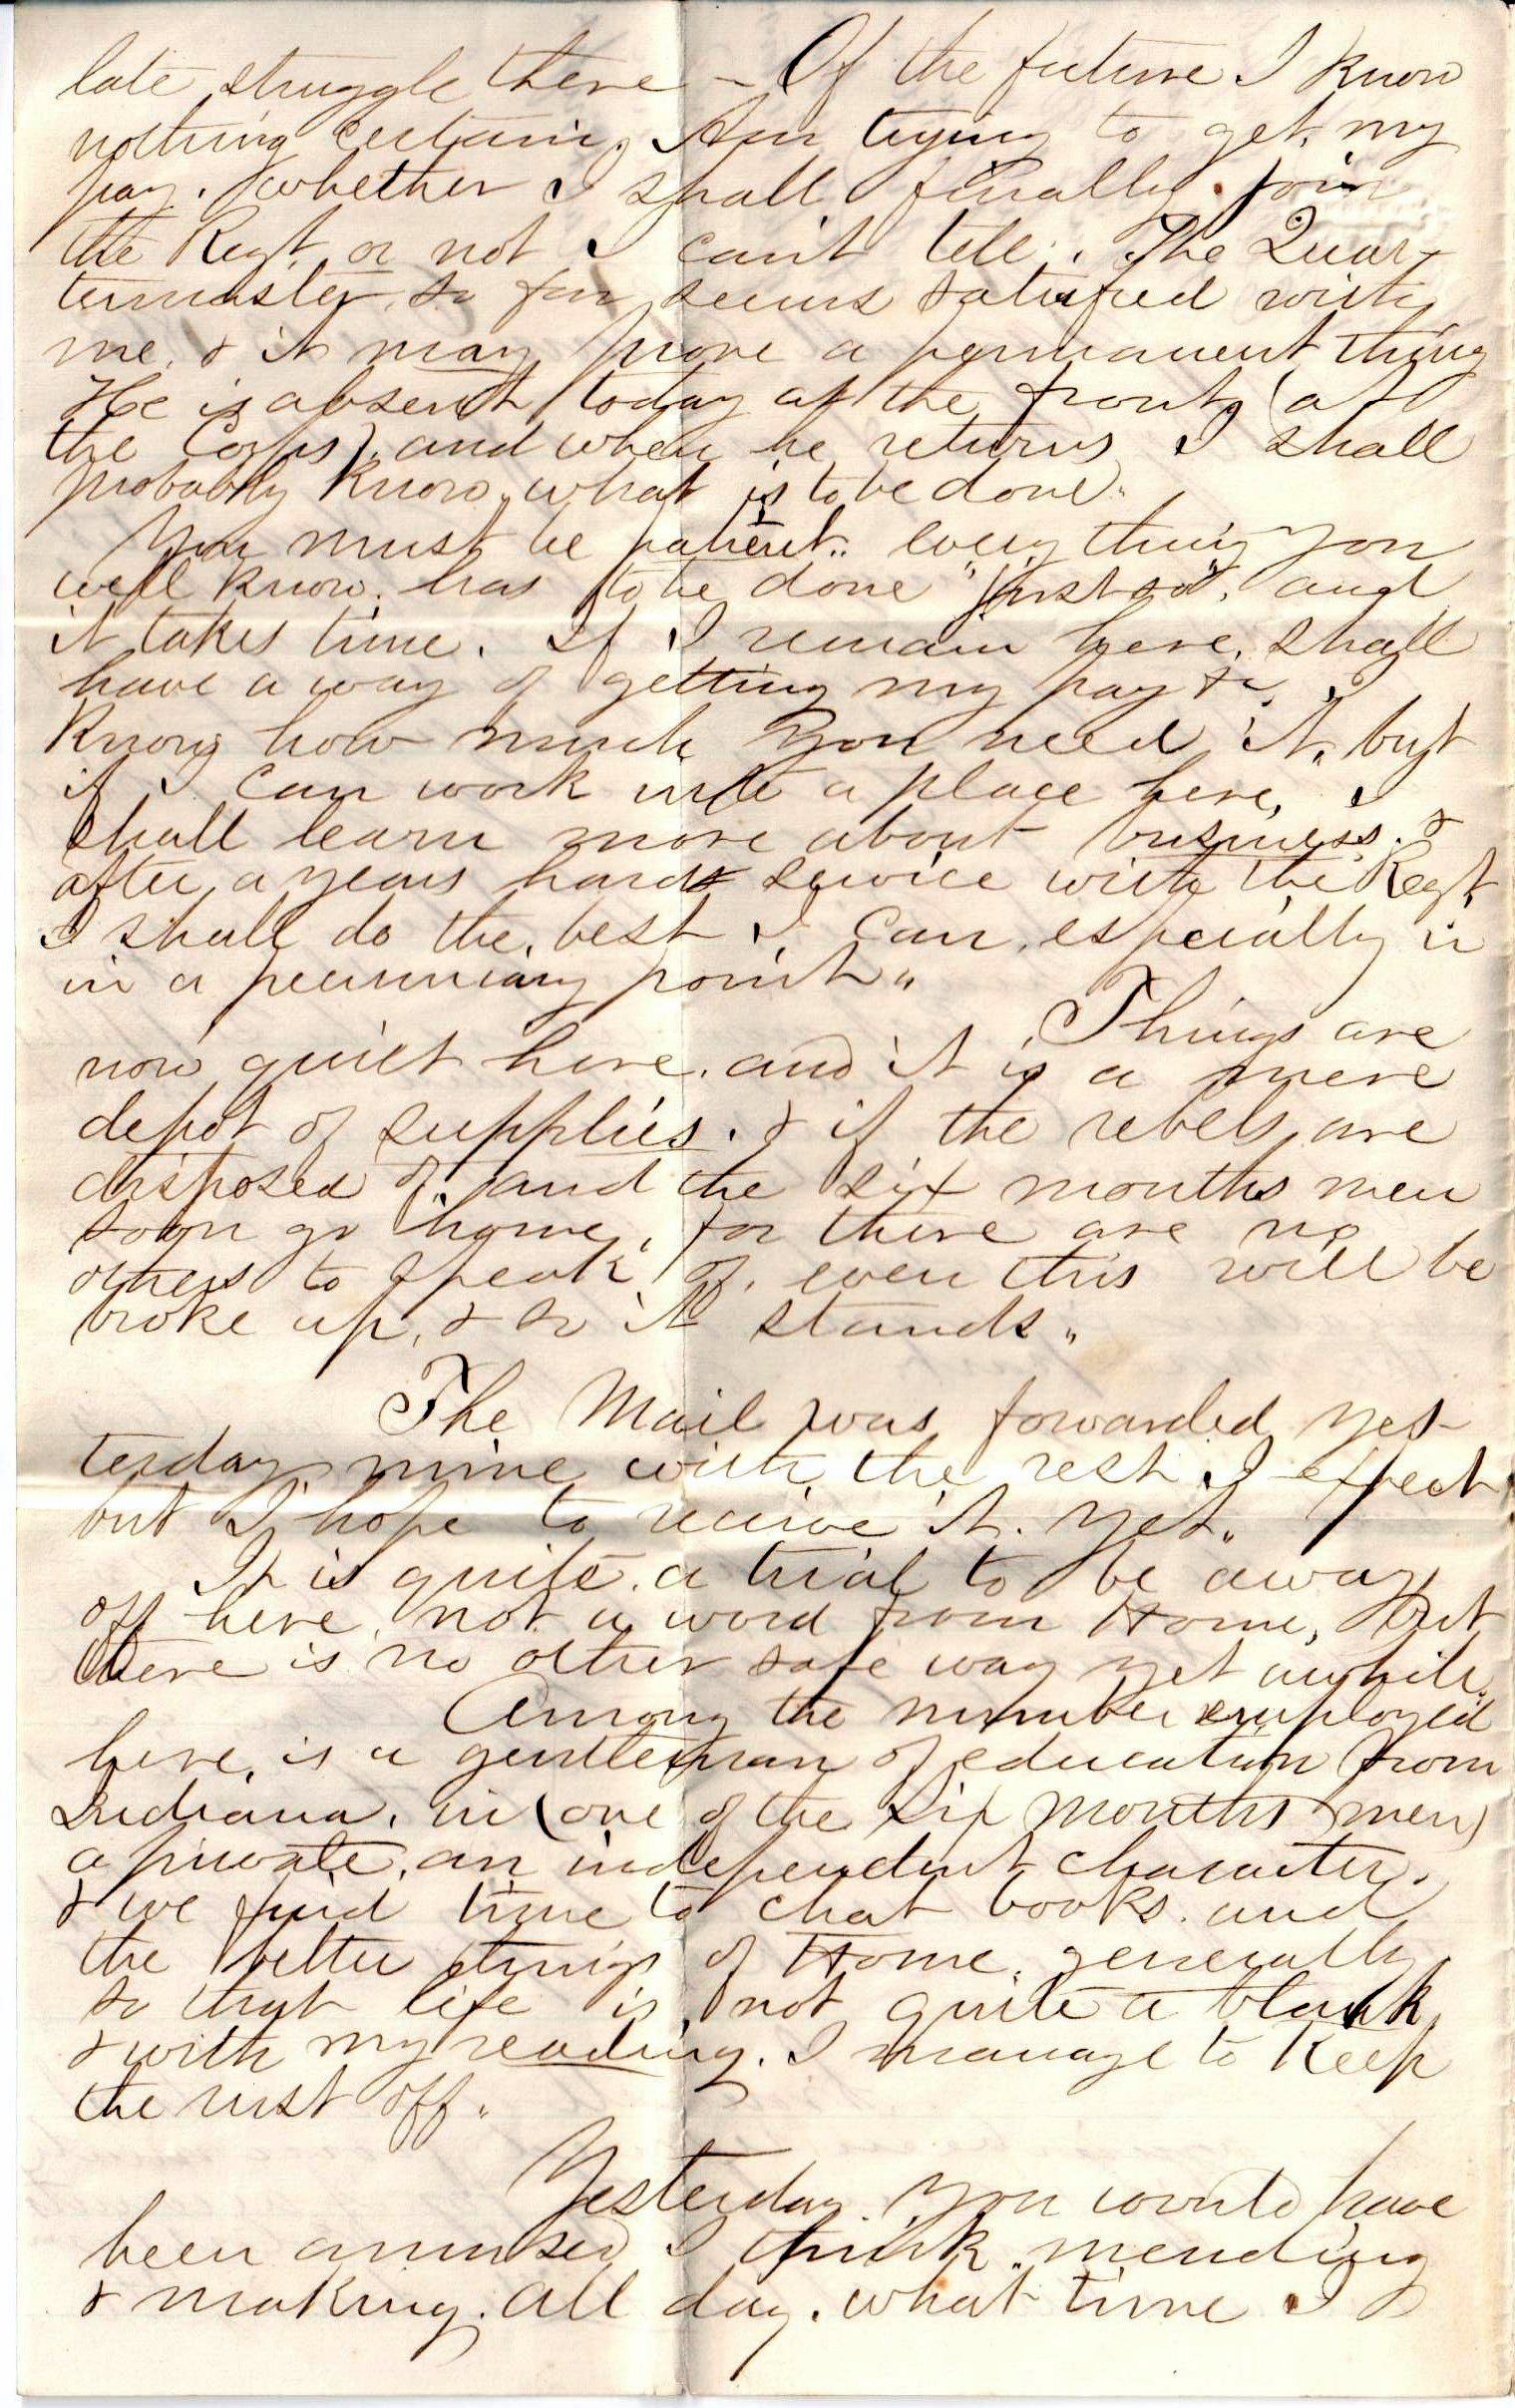 late struggle there – Of the future I know
nothing certain, Am trying to get my
pay. whether I shall finally join
the Regt. or not I can't tell. The Quar-
termaster so far seems satisfied with
me, & it may prove a permanent thing
He is absent today at the front, (at
the Corps) and when he returns I shall
probably know what is to be done.
You must be patient. every thing you
well know. has to be done "just so", and
it takes time. If I remain here, shall
have a way of getting my pay &c, I
know how much you need it, but
if I can work into a place here, I
shall learn more about business. &
after a years hard service with the Regt.
I shall do the best I can, especially in
in a pecuniary point "
Things are
now quiet here. and it is a mere
depot of supplies. & if the rebels are
disposed of, and the six months men
soon go home, for there are no
others to speak of. even this will be
broke up, & so it stands "
The Mail was forwarded yes-
terday, mine with the rest I expect
but I hope to receive it. yet.
It is quite a trial to be away
off here, not a word from Home, But
there is no other safe way yet awhile.
Among the number employed
here, is a gentleman of education from
Indiana. in (one of the Six months men)
a private, an independent character.
& we find time to chat books. and
the better things of Home. generally
so that life is not quite a blank,
& with my reading. I manage to keep
the rust off.
Yesterday. you would have
been amused I think. mending
& making. all day. what time I